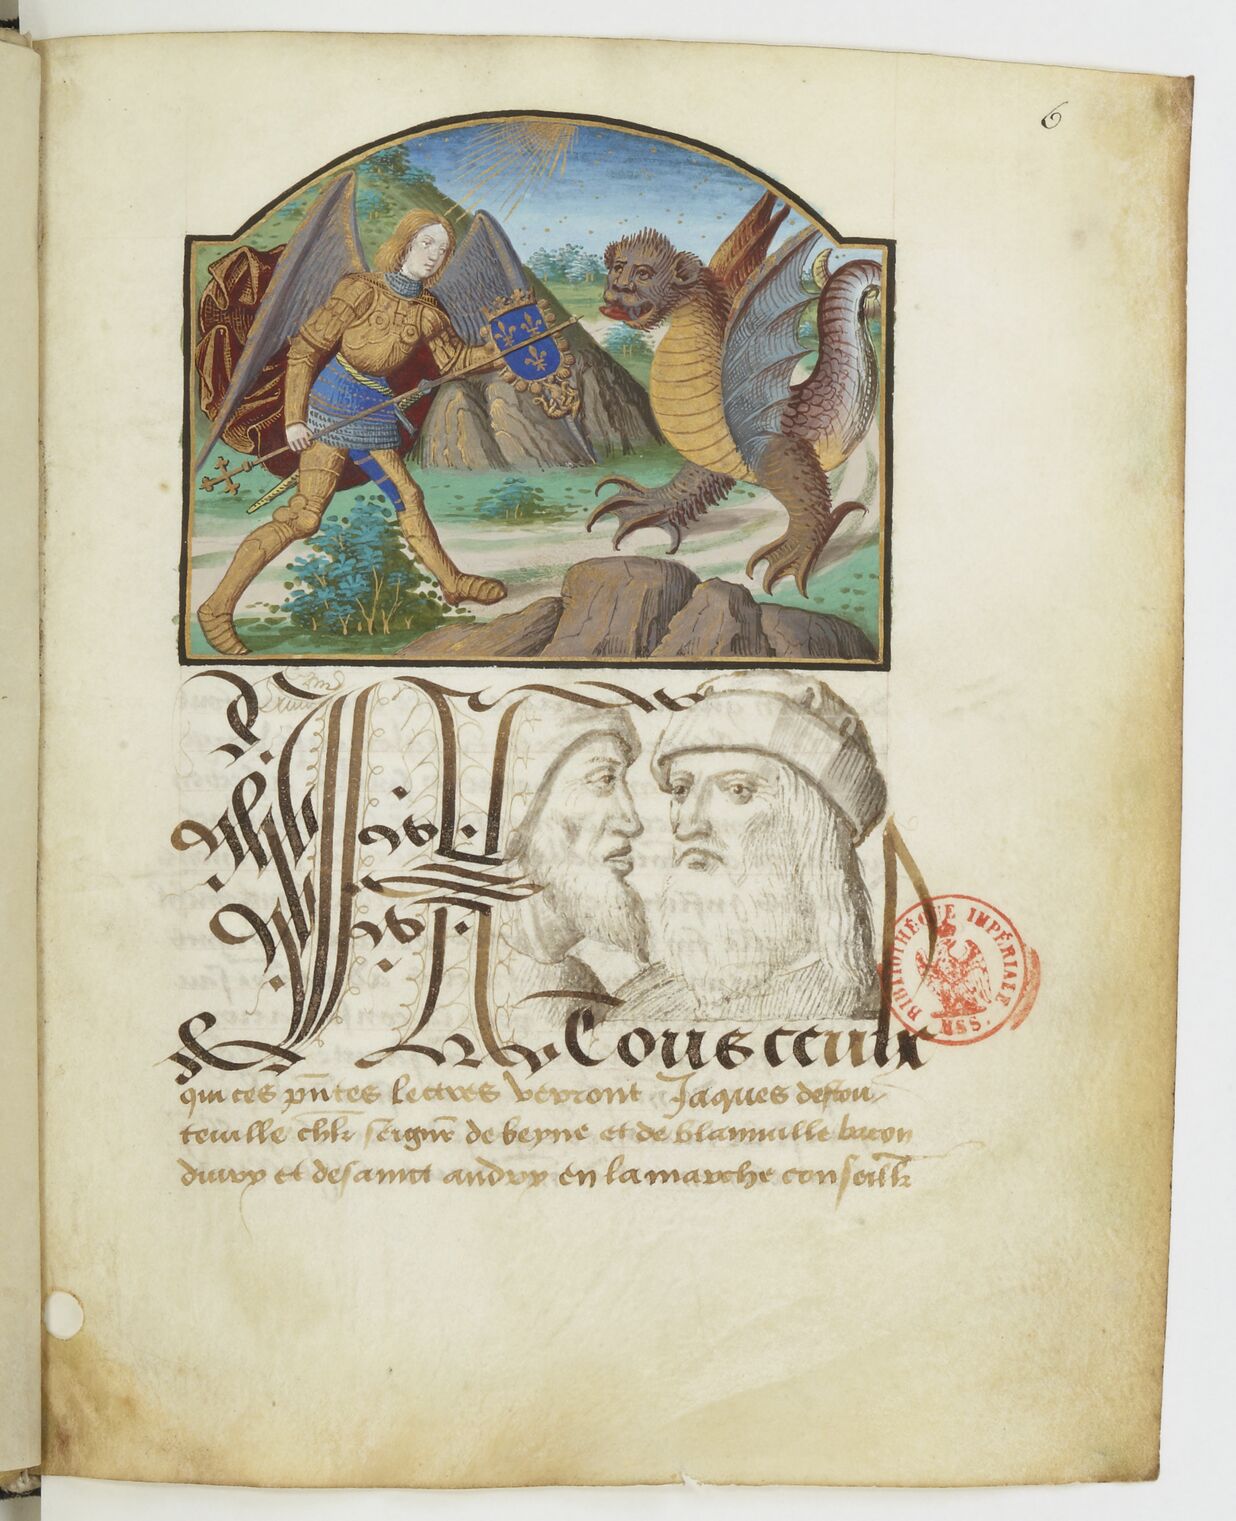 6
A Tous ceulx
qui ces pñtes lectres verront Jaques destou
teuille chlr seignr de beyne et de blainuille baron
diury et de sainct andry en la marche conseillr
BIBLIOTHÈQUE IMPÉRIALE
MSS.